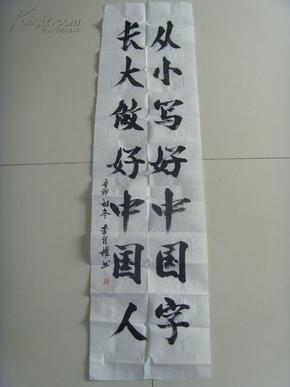 从小写好中国字
长大做好中国人
辛卯初冬